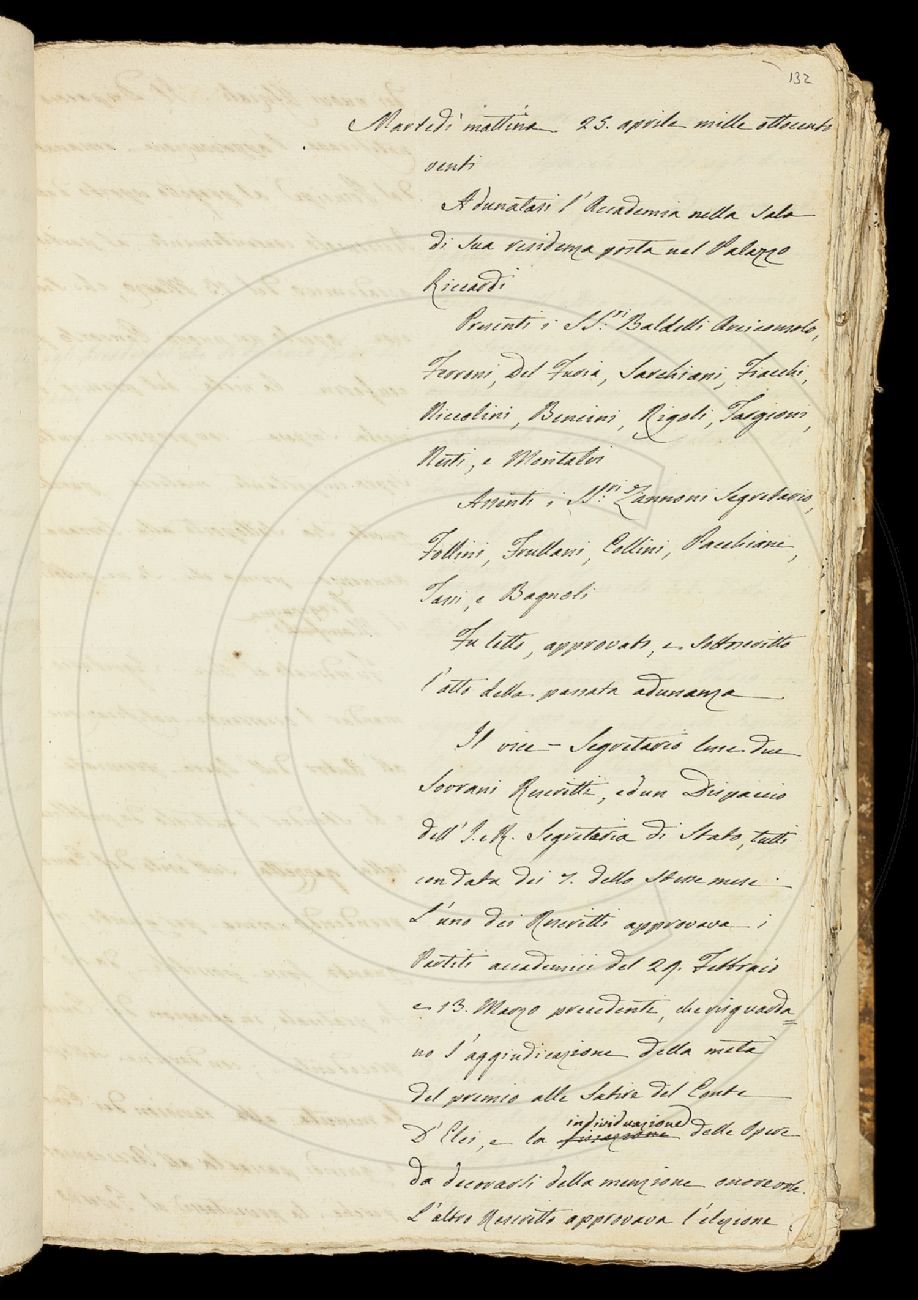 132
Martedì mattina 25. aprile mille ottocento
venti
Adunatasi l'Accademia nella Sala
di sua residenza posta nel Palazzo
Riccardi
Presenti i SS.ri Baldelli Arciconsolo,
Ferroni, Del Furia, Sarchiani, Fiacchi,
Niccolini, Bencini, Rigoli, Targioni,
Nesti, e Montalvi
Assenti i SS.ri Zannoni Segretario,
Follini, Frullani, Collini, Pacchiani,
Tassi, e Bagnoli
Fu letto, approvato, e sottoscritto
l'atto della passata adunanza
Il vice-Segretario lesse due
Sovrani Rescritti, ed un Dispaccio
dell'I. e R. Segretaria di Stato, tutti
con data dei 7. dello stesse mese.
L'uno dei Rescritti approvava i
Partiti accademici del 29. Febbraio
e 13. Marzo precedente, che risguarda=
no l'aggiudicazione della metà
del premio alle Satire del Conte
D'Elci, e la individuazione delle Opere
da decorarsi della menzione onorevole.
L'altro Rescritto approvava l'elezione